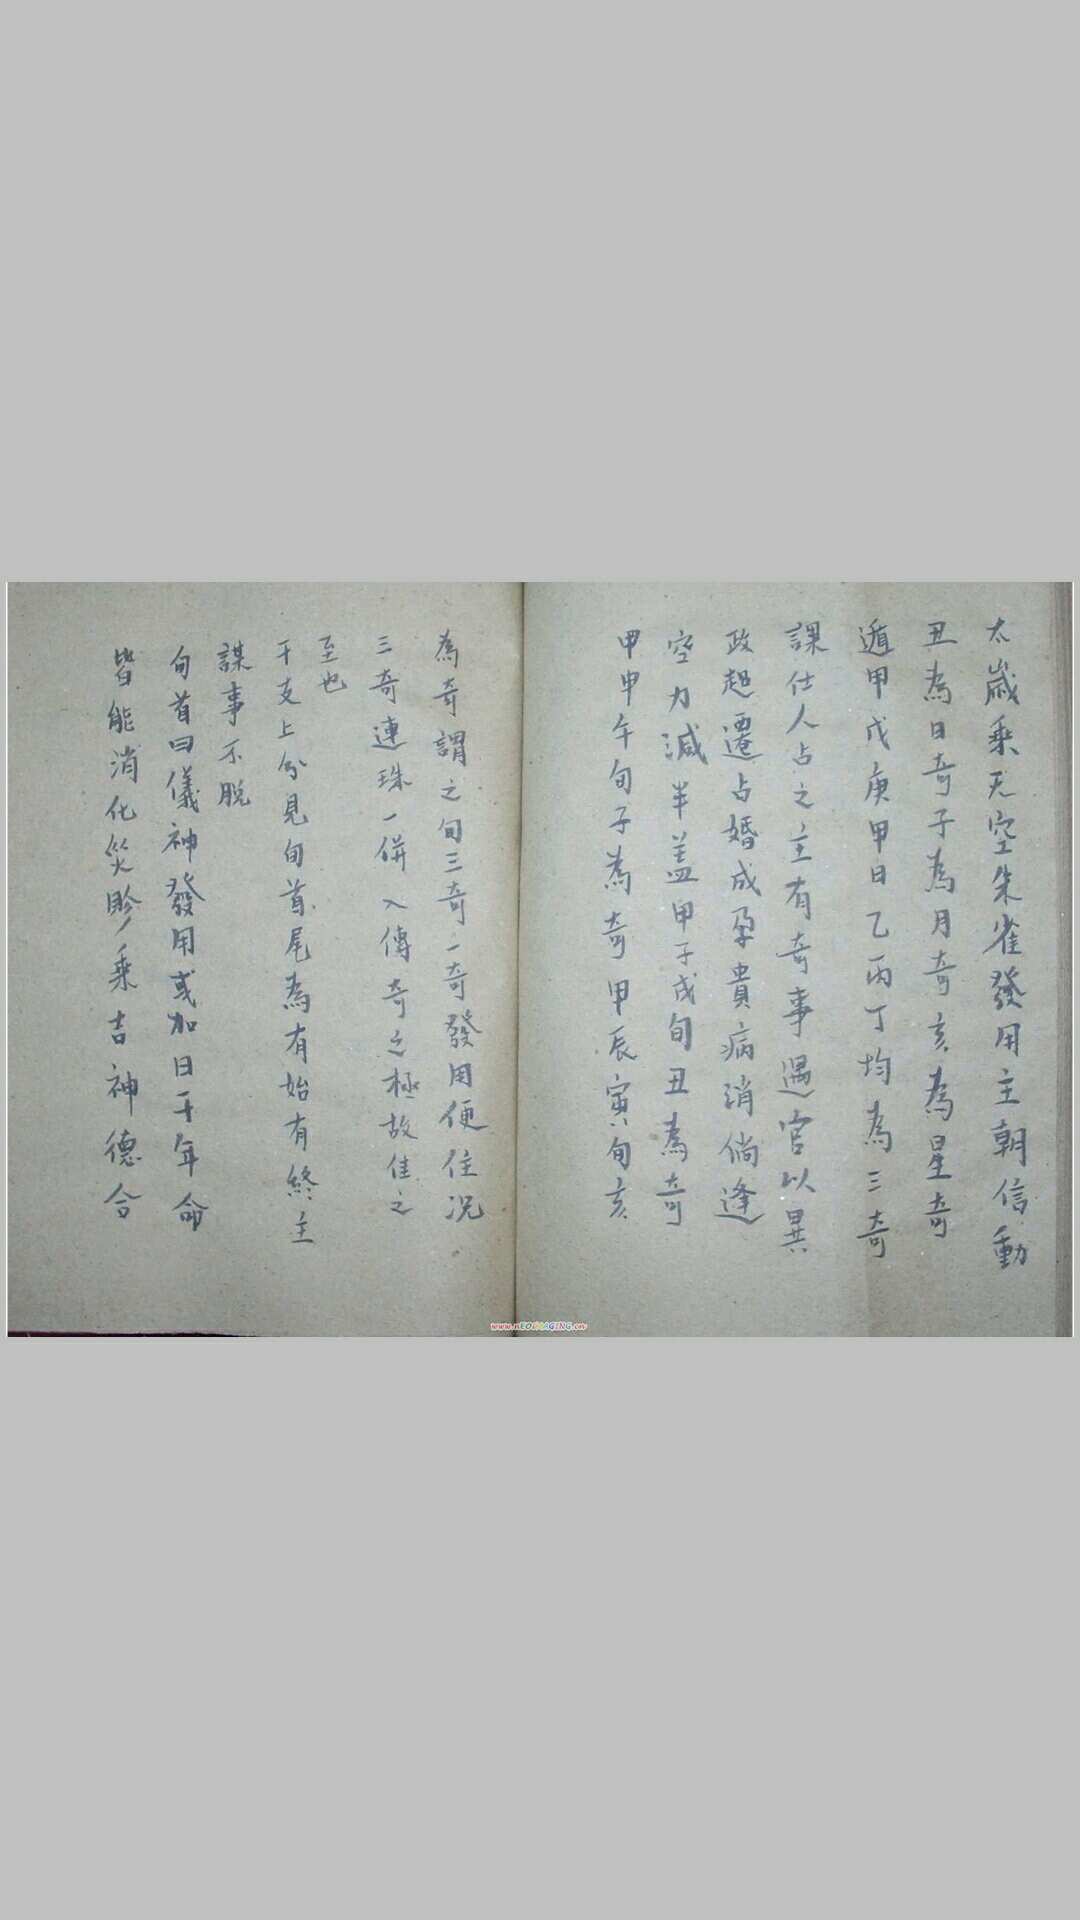 太歲乘天空朱雀發用主朝信動
丑為日奇子為月奇亥為星奇
遁甲戊庚甲日乙丙丁均為三奇
課仕人占之主有奇事遇官以異
政超遷占婚成孕貴病消倘逢
空力減半盖甲子戌旬丑為奇
甲申午旬子為奇甲辰寅旬亥
為奇謂之旬三奇一奇發用便佳况
三奇連珠一併入傳奇之極故佳之
至也
干支上分見旬首尾為有始有終主
謀事不脫
旬首曰儀神發用或加日干年命
皆能消化災眕乘吉神德合
www.nEOiMAGING.cn